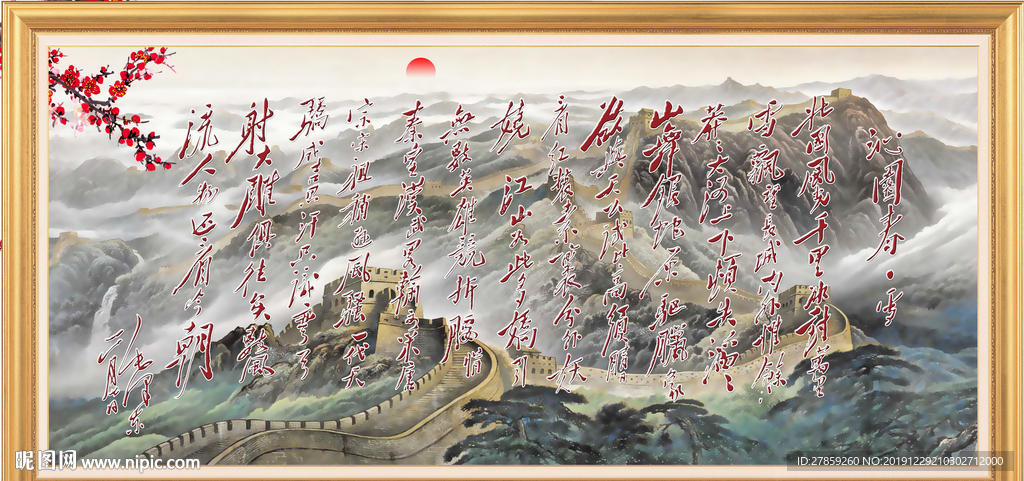 沁園春·雪
北国風光千里冰封萬里
雪飄望長城内外惟餘
莽〻大河上下頓失滔〻
山舞銀蛇原驅臘象
欲與天公試比高須晴日
看红裝素裹分外妖
嬈 江山如此多嬌引
無數英雄競折腰惜
秦皇漢武略輸文采唐
宗宋祖稍遜風騷一代天
驕成吉思汗只識彎弓
射大雕俱往矣數風
流人物还看今朝
毛澤東
昵图网 www.nipic.com
ID:27859260 NO:20191229210302712000